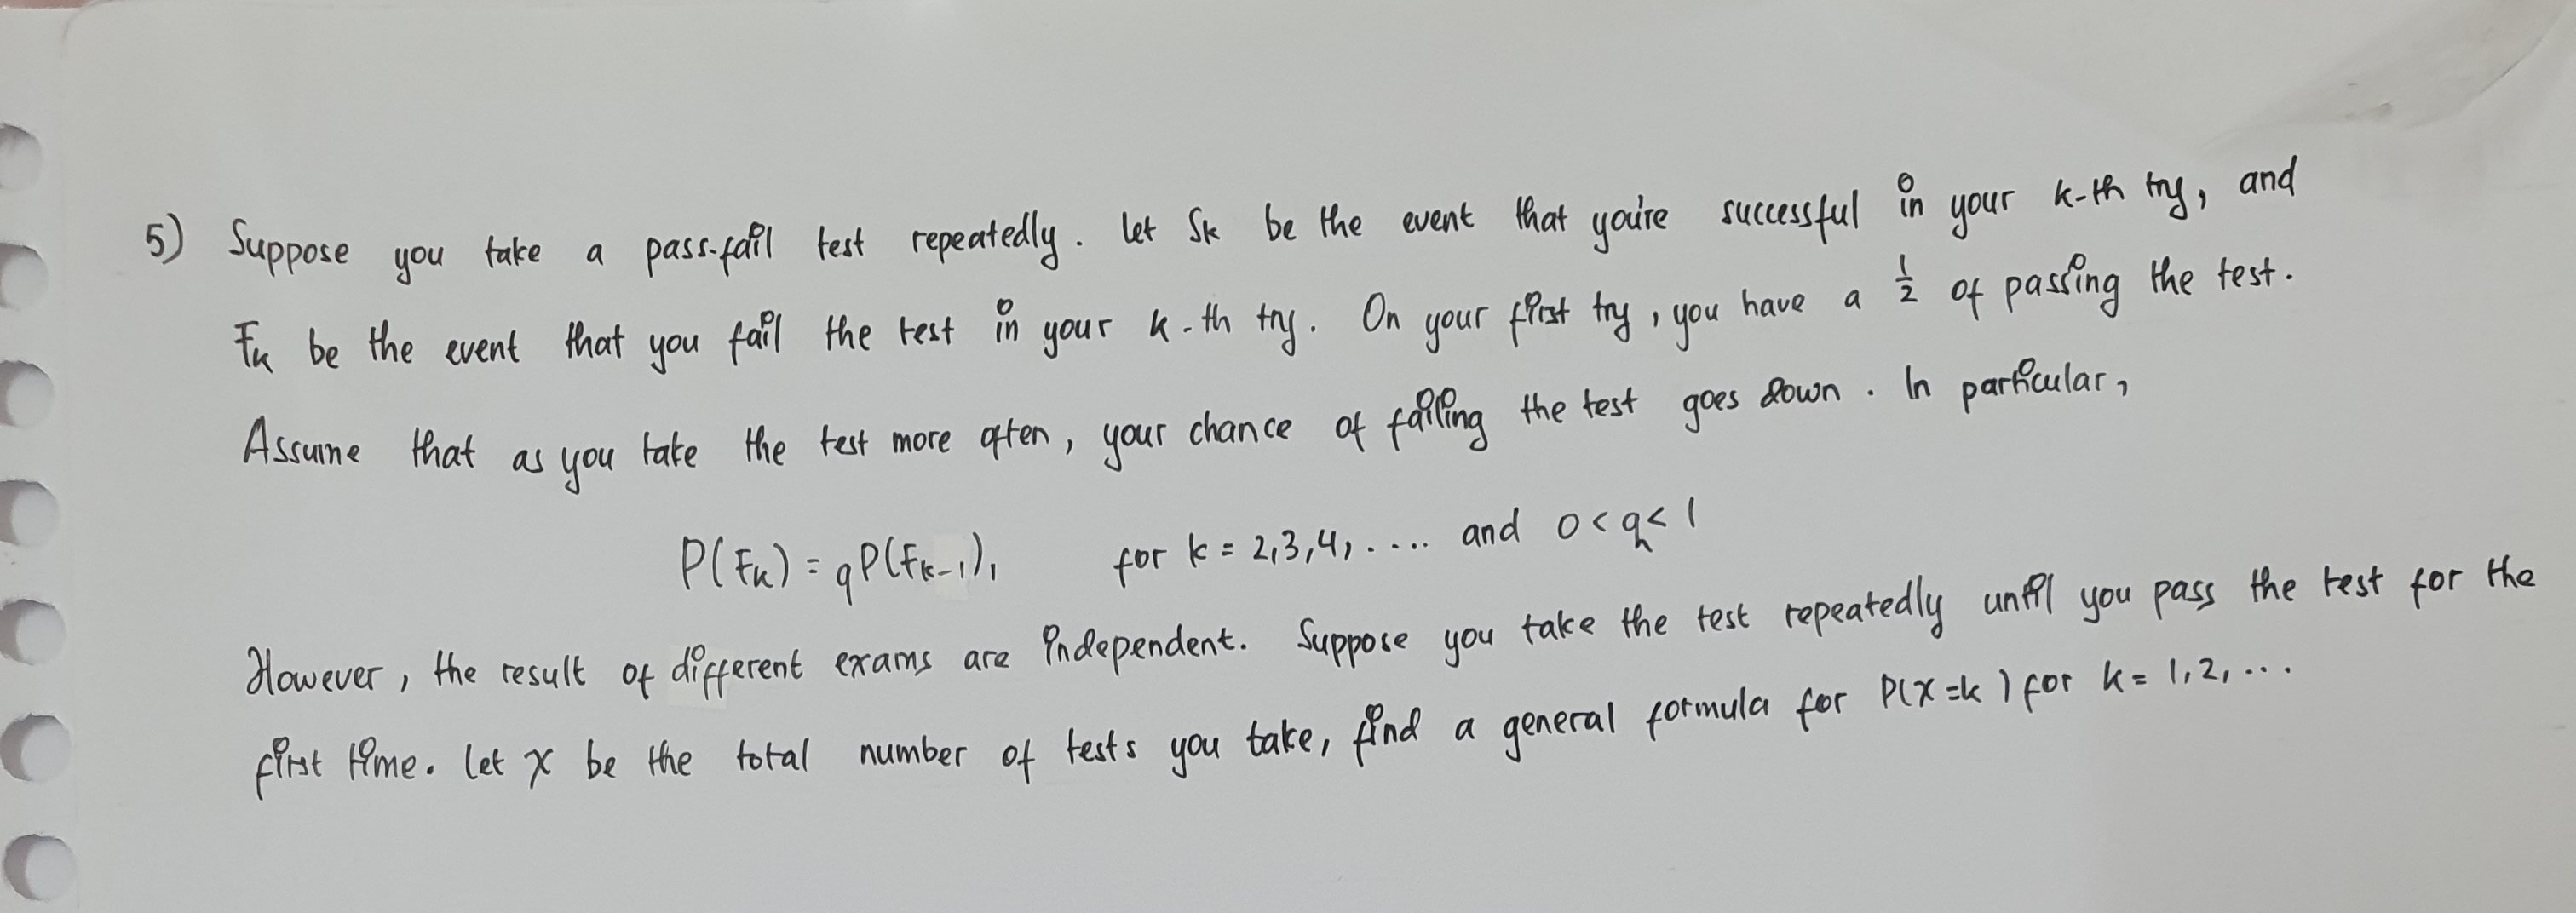 5) Suppose you take a pass-fail test repeatedly. let Sk be the event that you're successful in your k-th try, and
Fk be the event that you fail the test in your k-th try. On your first try, you have a 1/2 of passing the test.
Assume that as you take the test more often, your chance of failing the test goes down. In particular,
P(Fk) = qP(Fk-1), for k = 2,3,4, .... and 0<q<1
However, the result of different exams are independent. Suppose you take the test repeatedly until you pass the test for the
first time. Let X be the total number of tests you take, find a general formula for P(X=k) for k= 1,2, ...